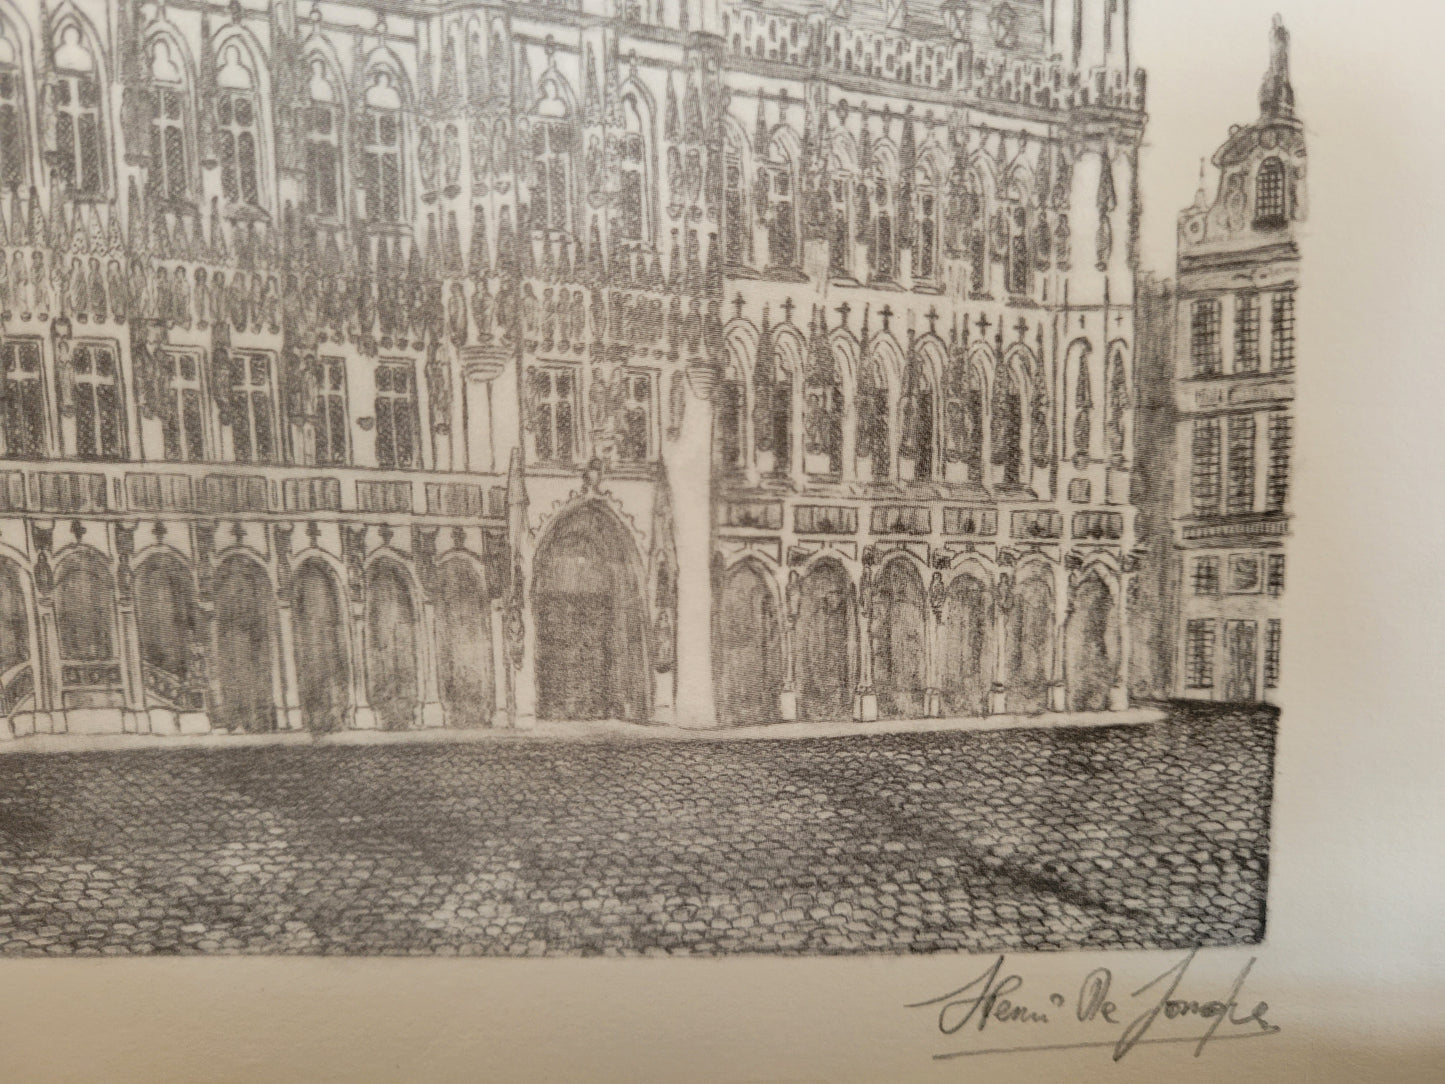 Henri De Jonghe